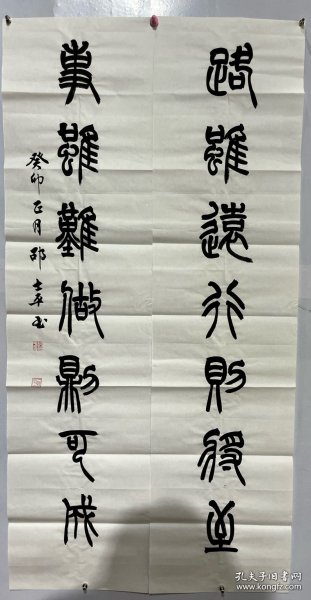 路雖遠行則將至
事雖難做則可成
癸卯正月邵士平書
孔夫子旧书网
www.kongfz.com